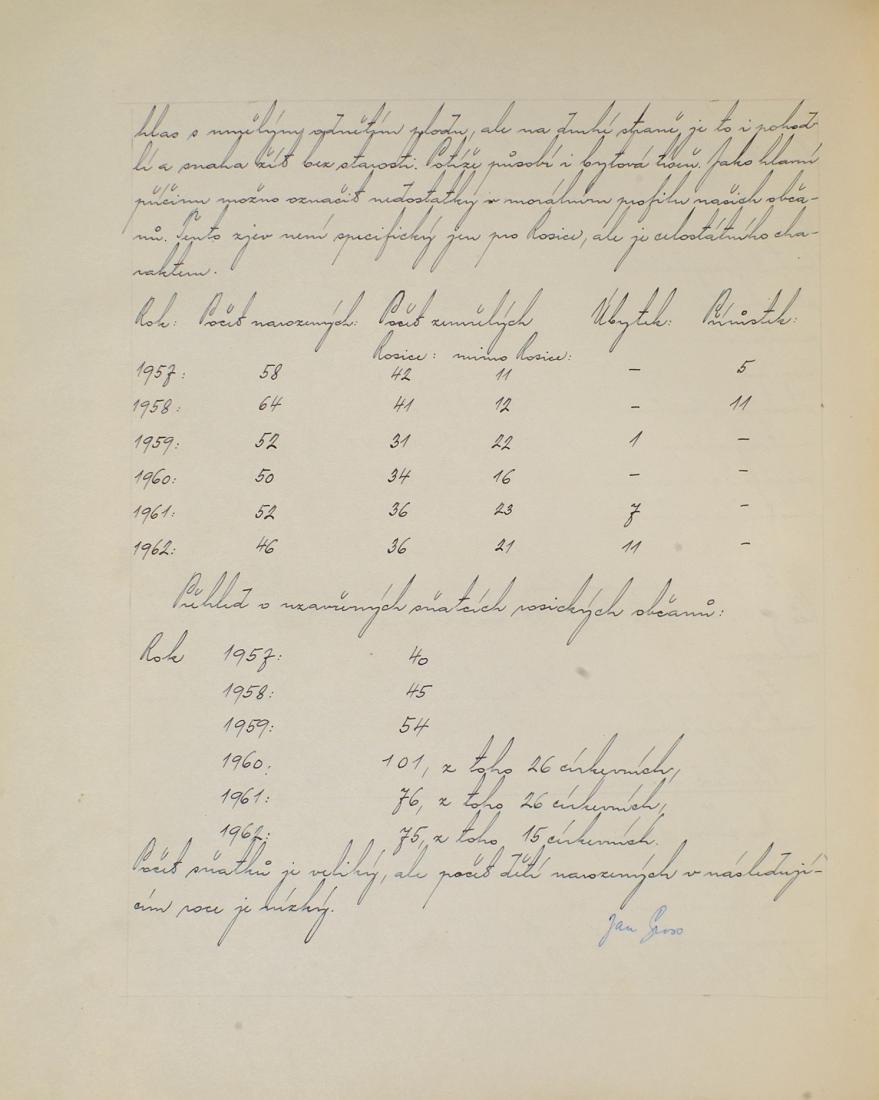 hlas s umělým odnětím plodu, ale na druhé straně je to i pohod-
lí a snaha žít bez starostí. Potíže působí i bytová tíseň. Jako hlavní
příčinu možno označit nedostatky v morálním profilu našich obča-
nů. Tento zjev není specifický jen pro Rosice, ale je celostátního cha-
rakteru.
Rok: Počet narozených: Počet zemřelých Úbytek: Přírůstek:
Rosice: mimo Rosice:
1957: 58 42 11 – 5
1958: 64 41 12 – 11
1959: 52 31 22 1 –
1960: 50 34 16 – –
1961: 52 36 23 7 –
1962: 46 36 21 11 –
Přehled o uzavřených sňatcích rosických občanů:
Rok 1957: 40
1958: 45
1959: 54
1960: 101, z toho 26 církevních,
1961: 76, z toho 26 církevních,
1962: 75, z toho 15 církevních.
Počet sňatků je veliký, ale počet dětí narozených v následují-
cím roce je nízký.
Jan Gross